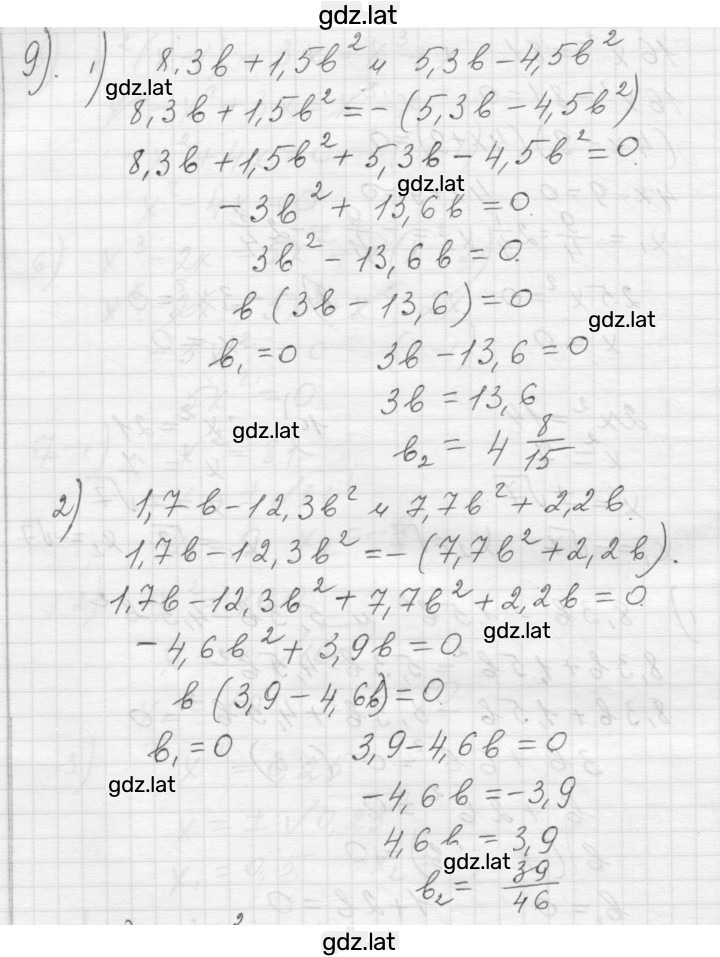 gdz.lat
9). 1) 8,3в + 1,5в² и 5,3в - 4,5в²
gdz.lat
8,3в + 1,5в² = - (5,3в - 4,5в²)
8,3в + 1,5в² + 5,3в - 4,5в² = 0.
gdz.lat
- 3в² + 13,6в = 0.
3в² - 13,6в = 0.
в (3в - 13,6) = 0
gdz.lat
в₁ = 0 3в - 13,6 = 0
3в = 13,6
gdz.lat
в₂ = 4 8/15
2) 1,7в - 12,3в² и 7,7в² + 2,2в.
1,7в - 12,3в² = - (7,7в² + 2,2в).
1,7в - 12,3в² + 7,7в² + 2,2в = 0.
gdz.lat
- 4,6в² + 3,9в = 0.
в (3,9 - 4,6в) = 0.
в₁ = 0 3,9 - 4,6в = 0
gdz.lat
- 4,6в = - 3,9
4,6в = 3,9
gdz.lat
в₂ = 39/46
gdz.lat